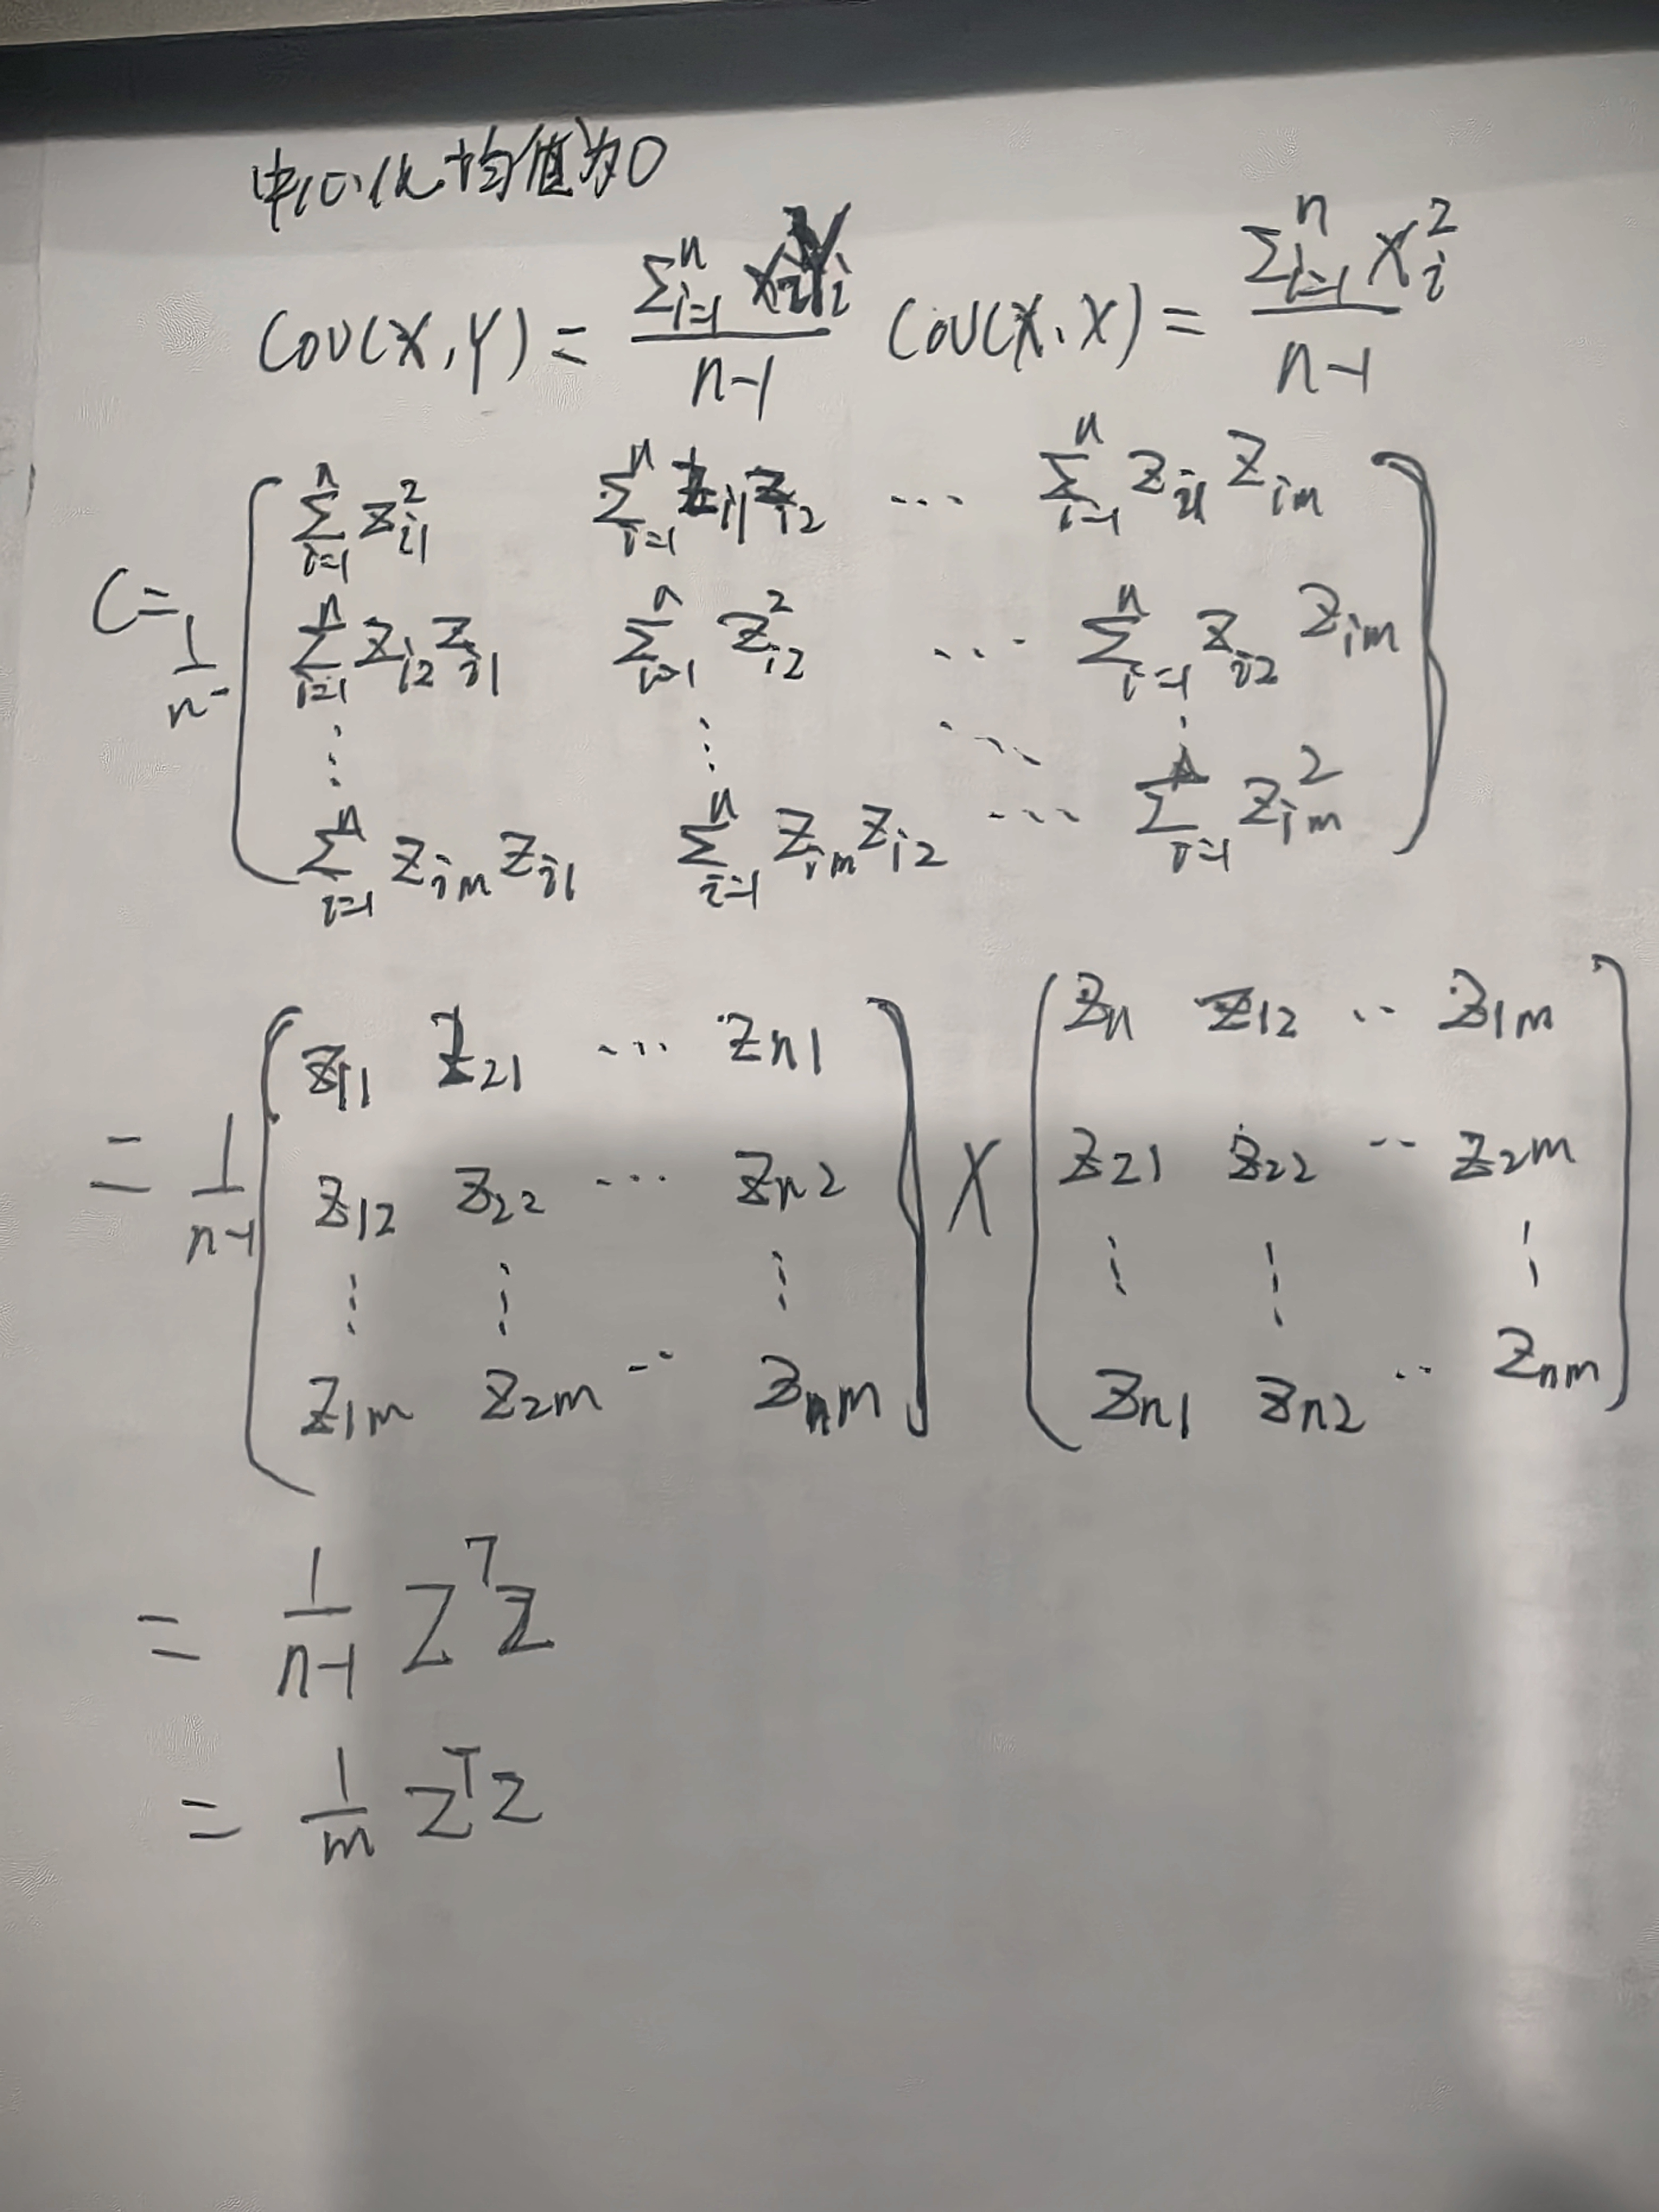 中心化均值为0
Cov(X,Y) = \frac{\sum_{i=1}^{n} X_i Y_i}{n-1} Cov(X,X) = \frac{\sum_{i=1}^{n} X_i^2}{n-1}
C = \frac{1}{n-} \begin{pmatrix} \sum_{i=1}^{n} z_{i1}^2 & \sum_{i=1}^{n} z_{i1} z_{i2} & \cdots & \sum_{i=1}^{n} z_{i1} z_{im} \\ \sum_{i=1}^{n} z_{i2} z_{i1} & \sum_{i=1}^{n} z_{i2}^2 & \cdots & \sum_{i=1}^{n} z_{i2} z_{im} \\ \vdots & \vdots & \ddots & \vdots \\ \sum_{i=1}^{n} z_{im} z_{i1} & \sum_{i=1}^{n} z_{im} z_{i2} & \cdots & \sum_{i=1}^{n} z_{im}^2 \end{pmatrix}
= \frac{1}{n-1} \begin{pmatrix} z_{11} & z_{21} & \cdots & z_{n1} \\ z_{12} & z_{22} & \cdots & z_{n2} \\ \vdots & \vdots & & \vdots \\ z_{1m} & z_{2m} & \cdots & z_{nm} \end{pmatrix} \times \begin{pmatrix} z_{11} & z_{12} & \cdots & z_{1m} \\ z_{21} & z_{22} & \cdots & z_{2m} \\ \vdots & \vdots & & \vdots \\ z_{n1} & z_{n2} & \cdots & z_{nm} \end{pmatrix}
= \frac{1}{n-1} Z^T Z
= \frac{1}{m} Z^T Z